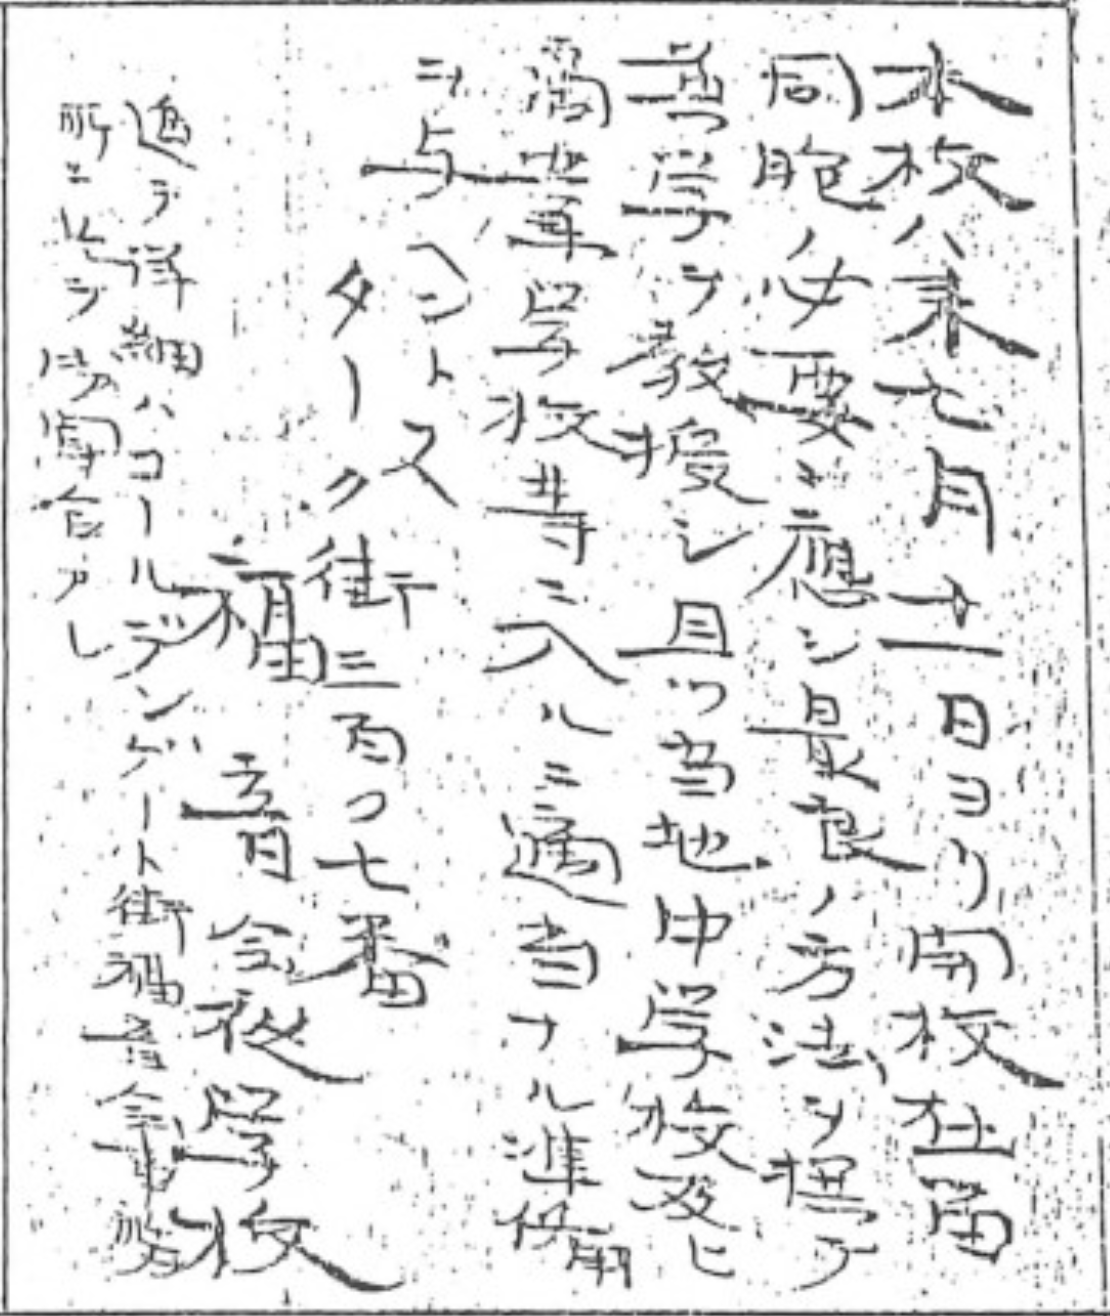 本校ハ来七月十一日ヨリ開校在留
同胞ノ必要ニ應シ最良ノ方法ヲ撰テ
英学ヲ教授シ且ツ当地中学校及ヒ
商業学校等ニ入ルニ適当ナル準備
ヲ与ヘントス
ターク街三百〇七番
福音会夜学校
追テ詳細ハコールデンゲート街福音会事務
所ニ御問合アレ